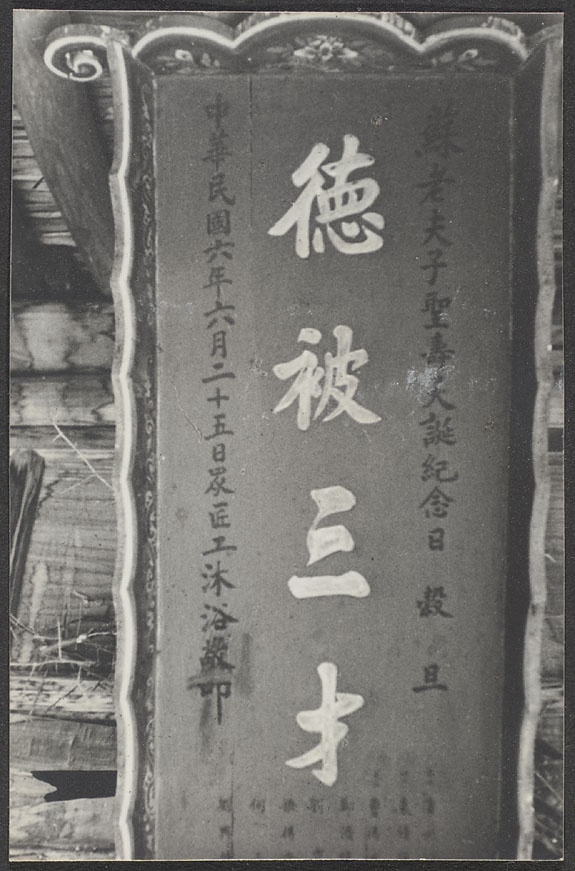 蘇老夫子聖壽天誕紀念日 穀旦
德被三才
中華民國六年六月二十五日炭匠工沐浴敬叩